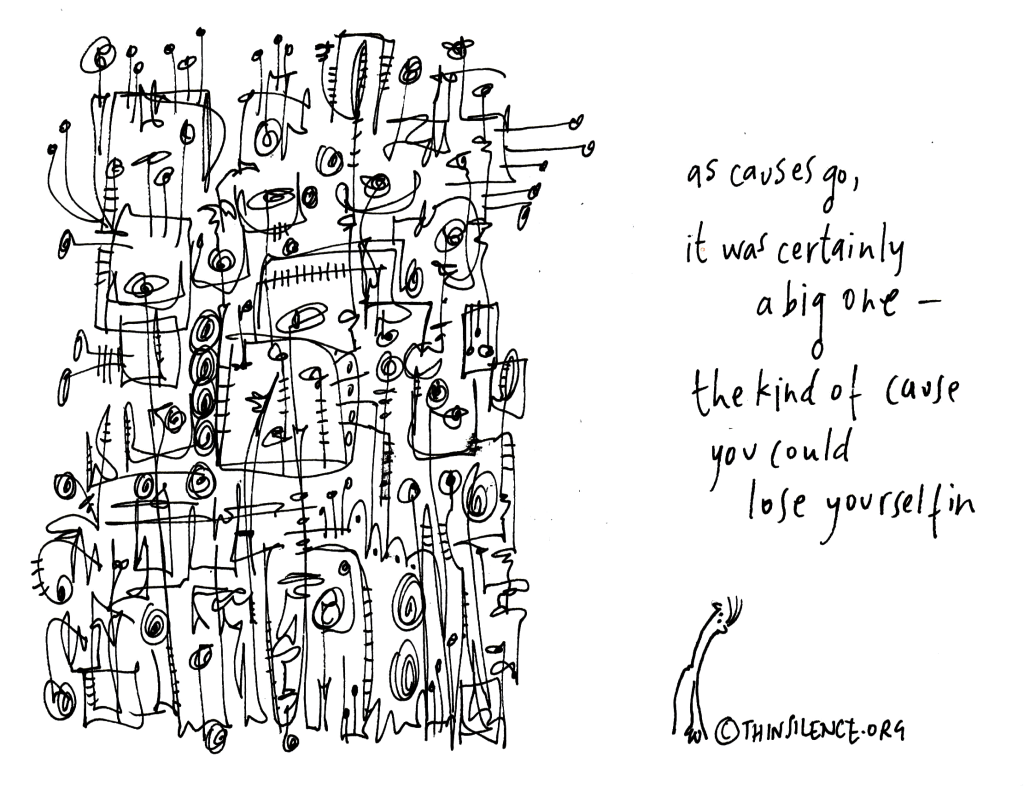 as causes go,
it was certainly
a big one –
the kind of cause
you could
lose yourself in
©THINSILENCE.ORG